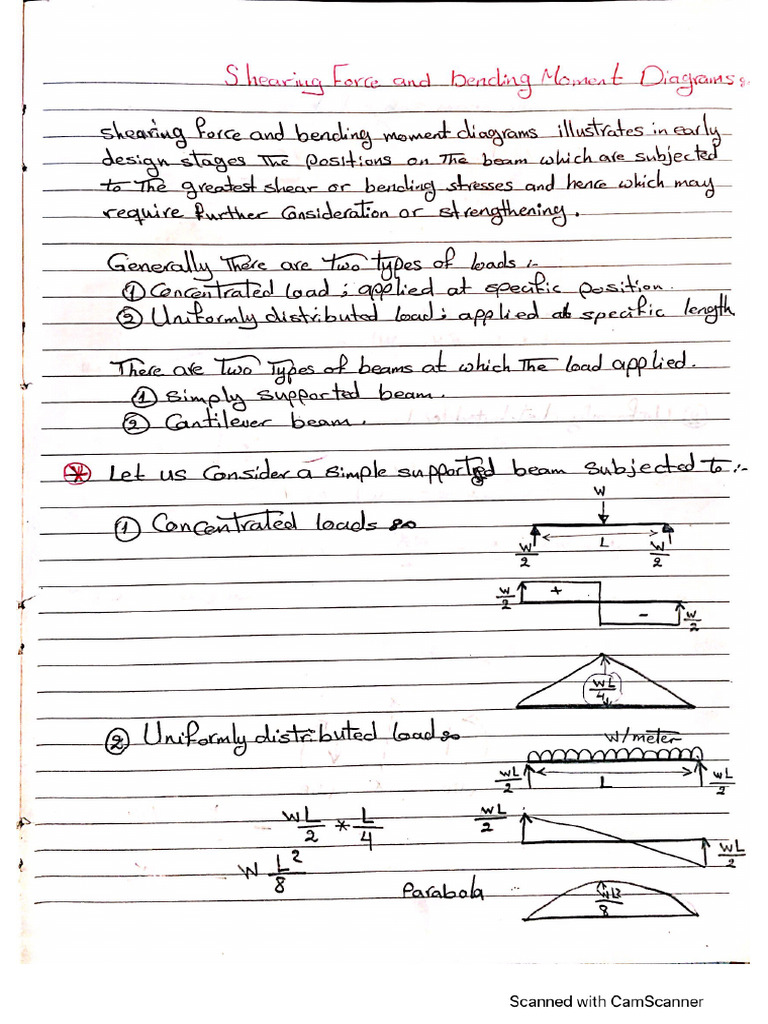 Shearing Force and bending Moment Diagrams :-
shearing force and bending moment diagrams illustrates in early
design stages The positions on The beam which are subjected
to The greatest shear or bending stresses and hence which may
require further Consideration or strengthening.
Generally There are Two types of loads :-
① Concentrated load ; applied at specific position.
② Uniformly distributed load ; applied at specific length
There are Two Types of beams at which The load applied.
① Simply supported beam.
② Cantilever beam.
* Let us Consider a simple supported beam subjected to :-
① Concentrated loads :-
W
W/2 L W/2
W/2 + - W/2
WL/4
② Uniformly distributed load :-
W/meter
WL/2 L WL/2
WL/2 * L/4
WL/2 WL/2
W L²/8
Parabola
8
Scanned with CamScanner